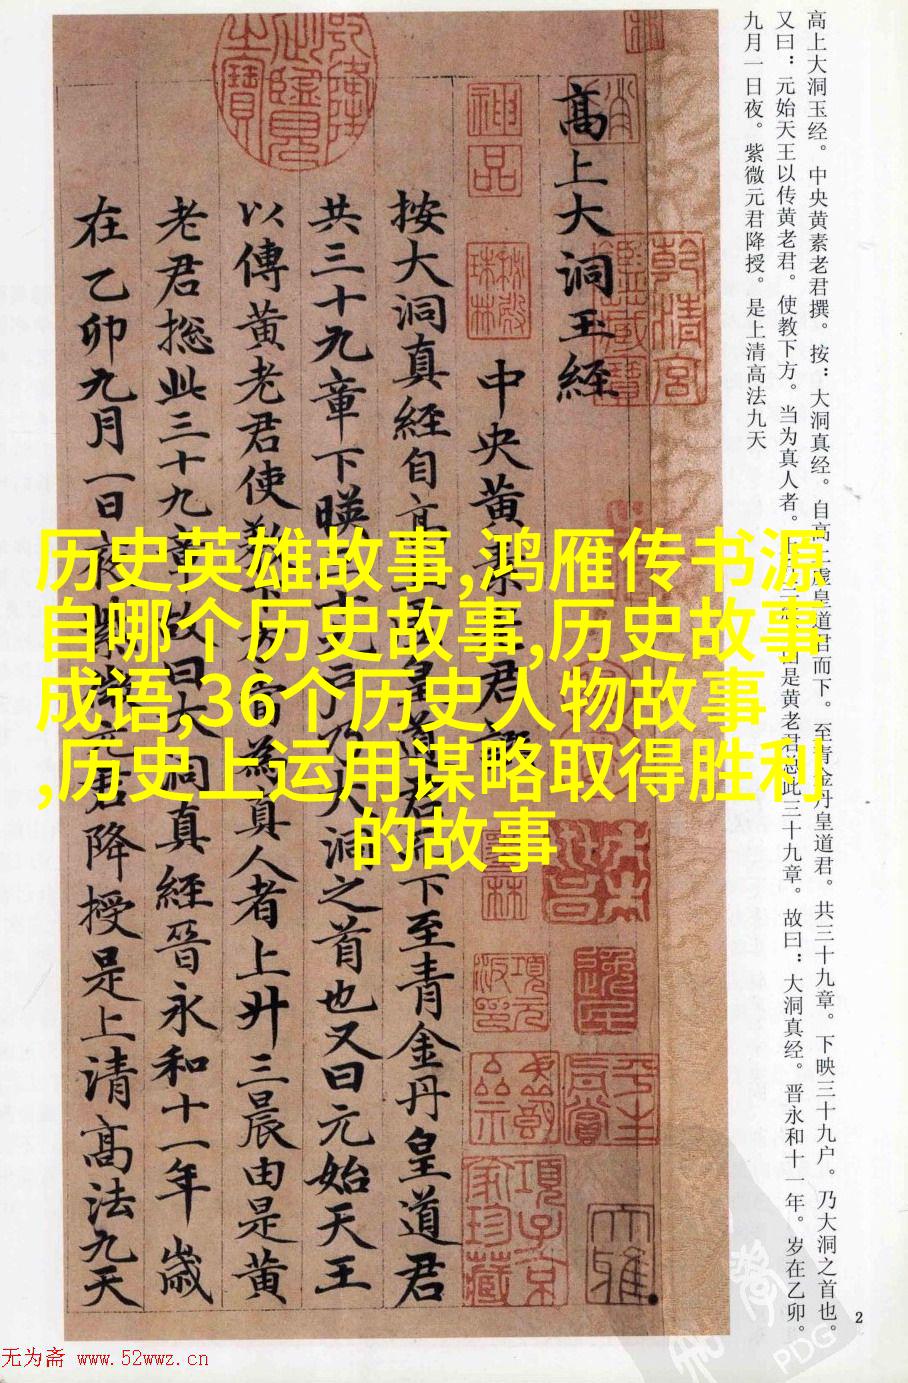 高上大洞玉经。中央黄素老君撰。按：大洞真经。自高上虚皇道君而下。至青金丹皇道君。共三十九章。下映三十九户。乃大洞之首也。
又曰：元始天王以传黄老君。使教下方。当为真人者。上升三晨。由是黄老君总此三十九章。故曰：大洞真经。晋永和十一年。岁在乙卯。
九月一日夜。紫微元君降授。是上清高法九天
高上大洞玉經
中央黄素老君
按大洞真經自高皇道君下至青金丹皇道君
共三十九章下暎三十九户乃大洞之首也又曰元始天王
以傳黄老君使教下方為真人者上升三晨由是黄
老君捴此三十九章故曰大洞真經晉永和十一年歲
在乙卯九月一日夜紫微元君降授是上清高法九天
神品
乾清宫鑑藏寶
項子京家珍藏
历史英雄故事,鸿雁传书源
自哪个历史故事,历史故事
成语,36个历史人物故事
,历史上运用谋略取得胜利
的故事
2
无为斋 www.52wwz.cn
PDG